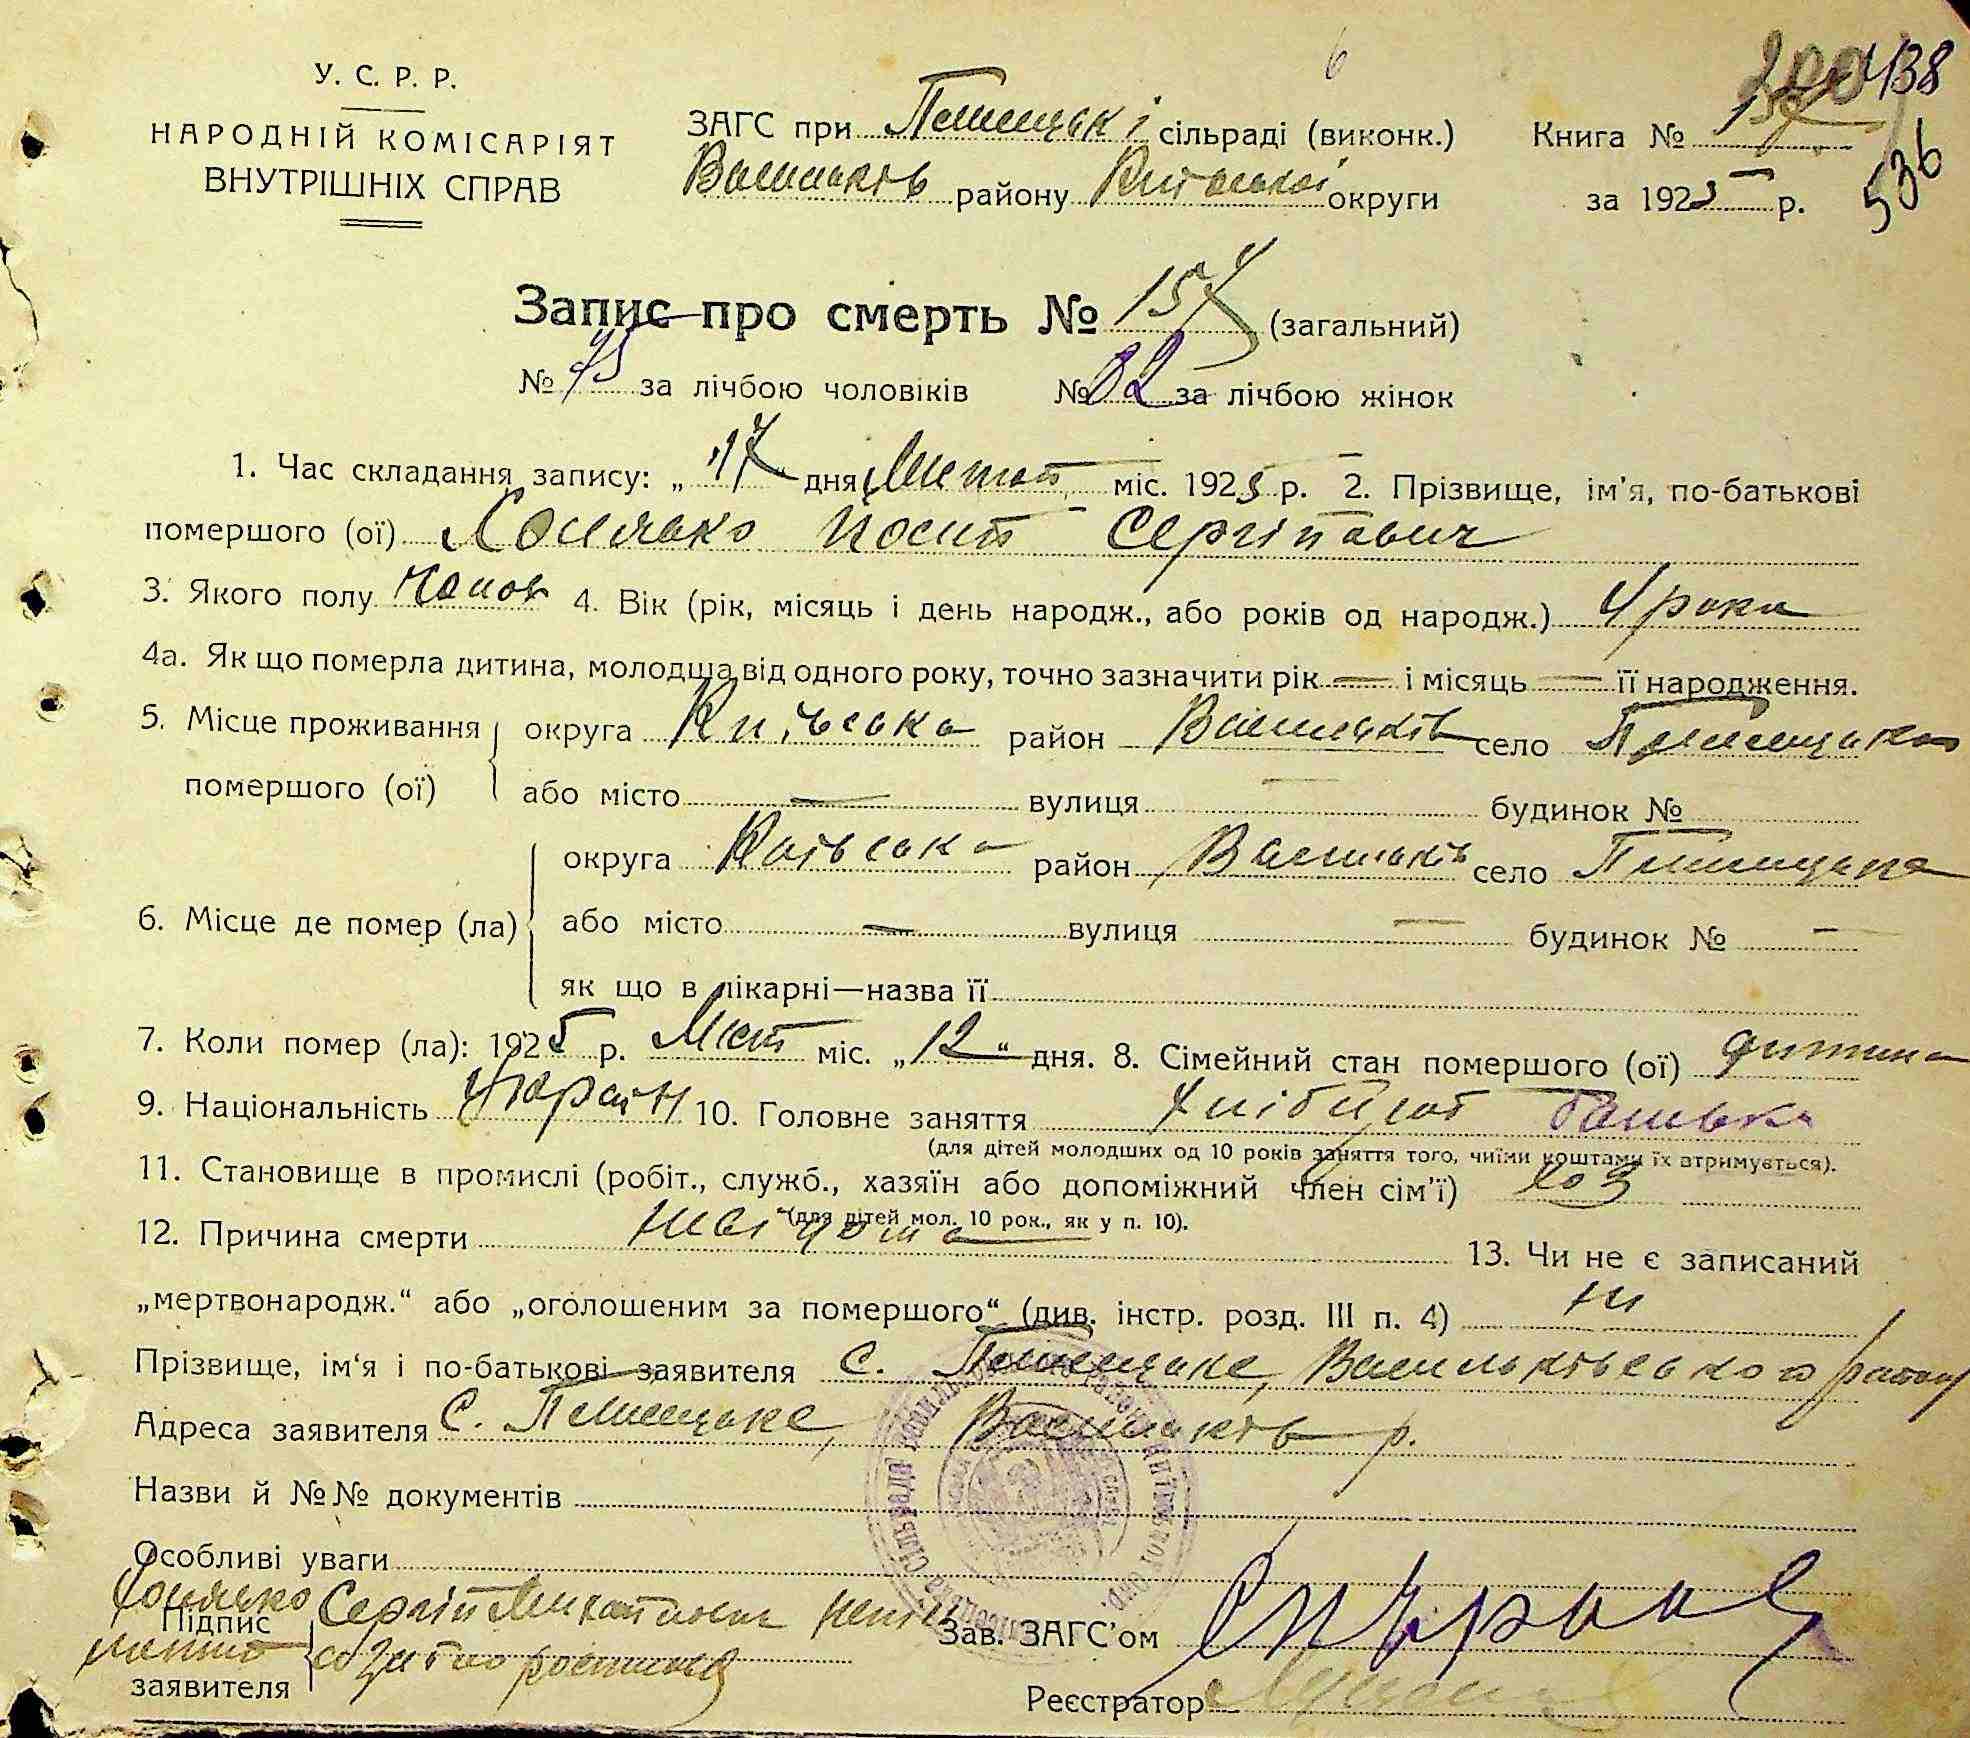 438
У. С. Р. Р.
НАРОДНІЙ КОМІСАРІЯТ
ВНУТРІШНІХ СПРАВ
ЗАГС при Плисецькі сільраді (виконк.)
Васильків району Київської округи
Книга № 157
за 1925 р.
536
Запис про смерть № 157 (загальний)
№ 75 за лічбою чоловіків № 82 за лічбою жінок
1. Час складання запису: „17" дня Лютот міс. 1925 р. 2. Прізвище, ім'я, по-батькові
помершого (ої) Хоменко Йосип Сергійович
3. Якого полу Чолов 4. Вік (рік, місяць і день народж., або років од народж.) 4 роки
4а. Як що померла дитина, молодша від одного року, точно зазначити рік — і місяць — її народження.
5. Місце проживання округа Київська район Васильків село Плисецьке
помершого (ої) або місто — вулиця — будинок №
округа Київська район Васильків село Плисецьке
6. Місце де помер (ла) або місто — вулиця — будинок № —
як що в лікарні—назва її
7. Коли помер (ла): 1925 р. Лют міс. „12" дня. 8. Сімейний стан помершого (ої) дитина
9. Національність Україн 10. Головне заняття хлібороб батько
(для дітей молодших од 10 років заняття того, чиїми коштами їх втримується).
11. Становище в промислі (робіт., служб., хазяїн або допоміжний член сім'ї) хоз
(для дітей мол. 10 рок., як у п. 10).
12. Причина смерти невідома 13. Чи не є записаний
„мертвонародж." або „оголошеним за помершого" (див. інстр. розд. III п. 4) ні
Прізвище, ім'я і по-батькові заявителя С. Плисецьке, Васильківського району
Адреса заявителя С. Плисецьке, Васильків р.
Назви й №№ документів
Особливі уваги
Підпис Сергій Михайлович
заявителя
Зав. ЗАГС'ом
Реєстратор